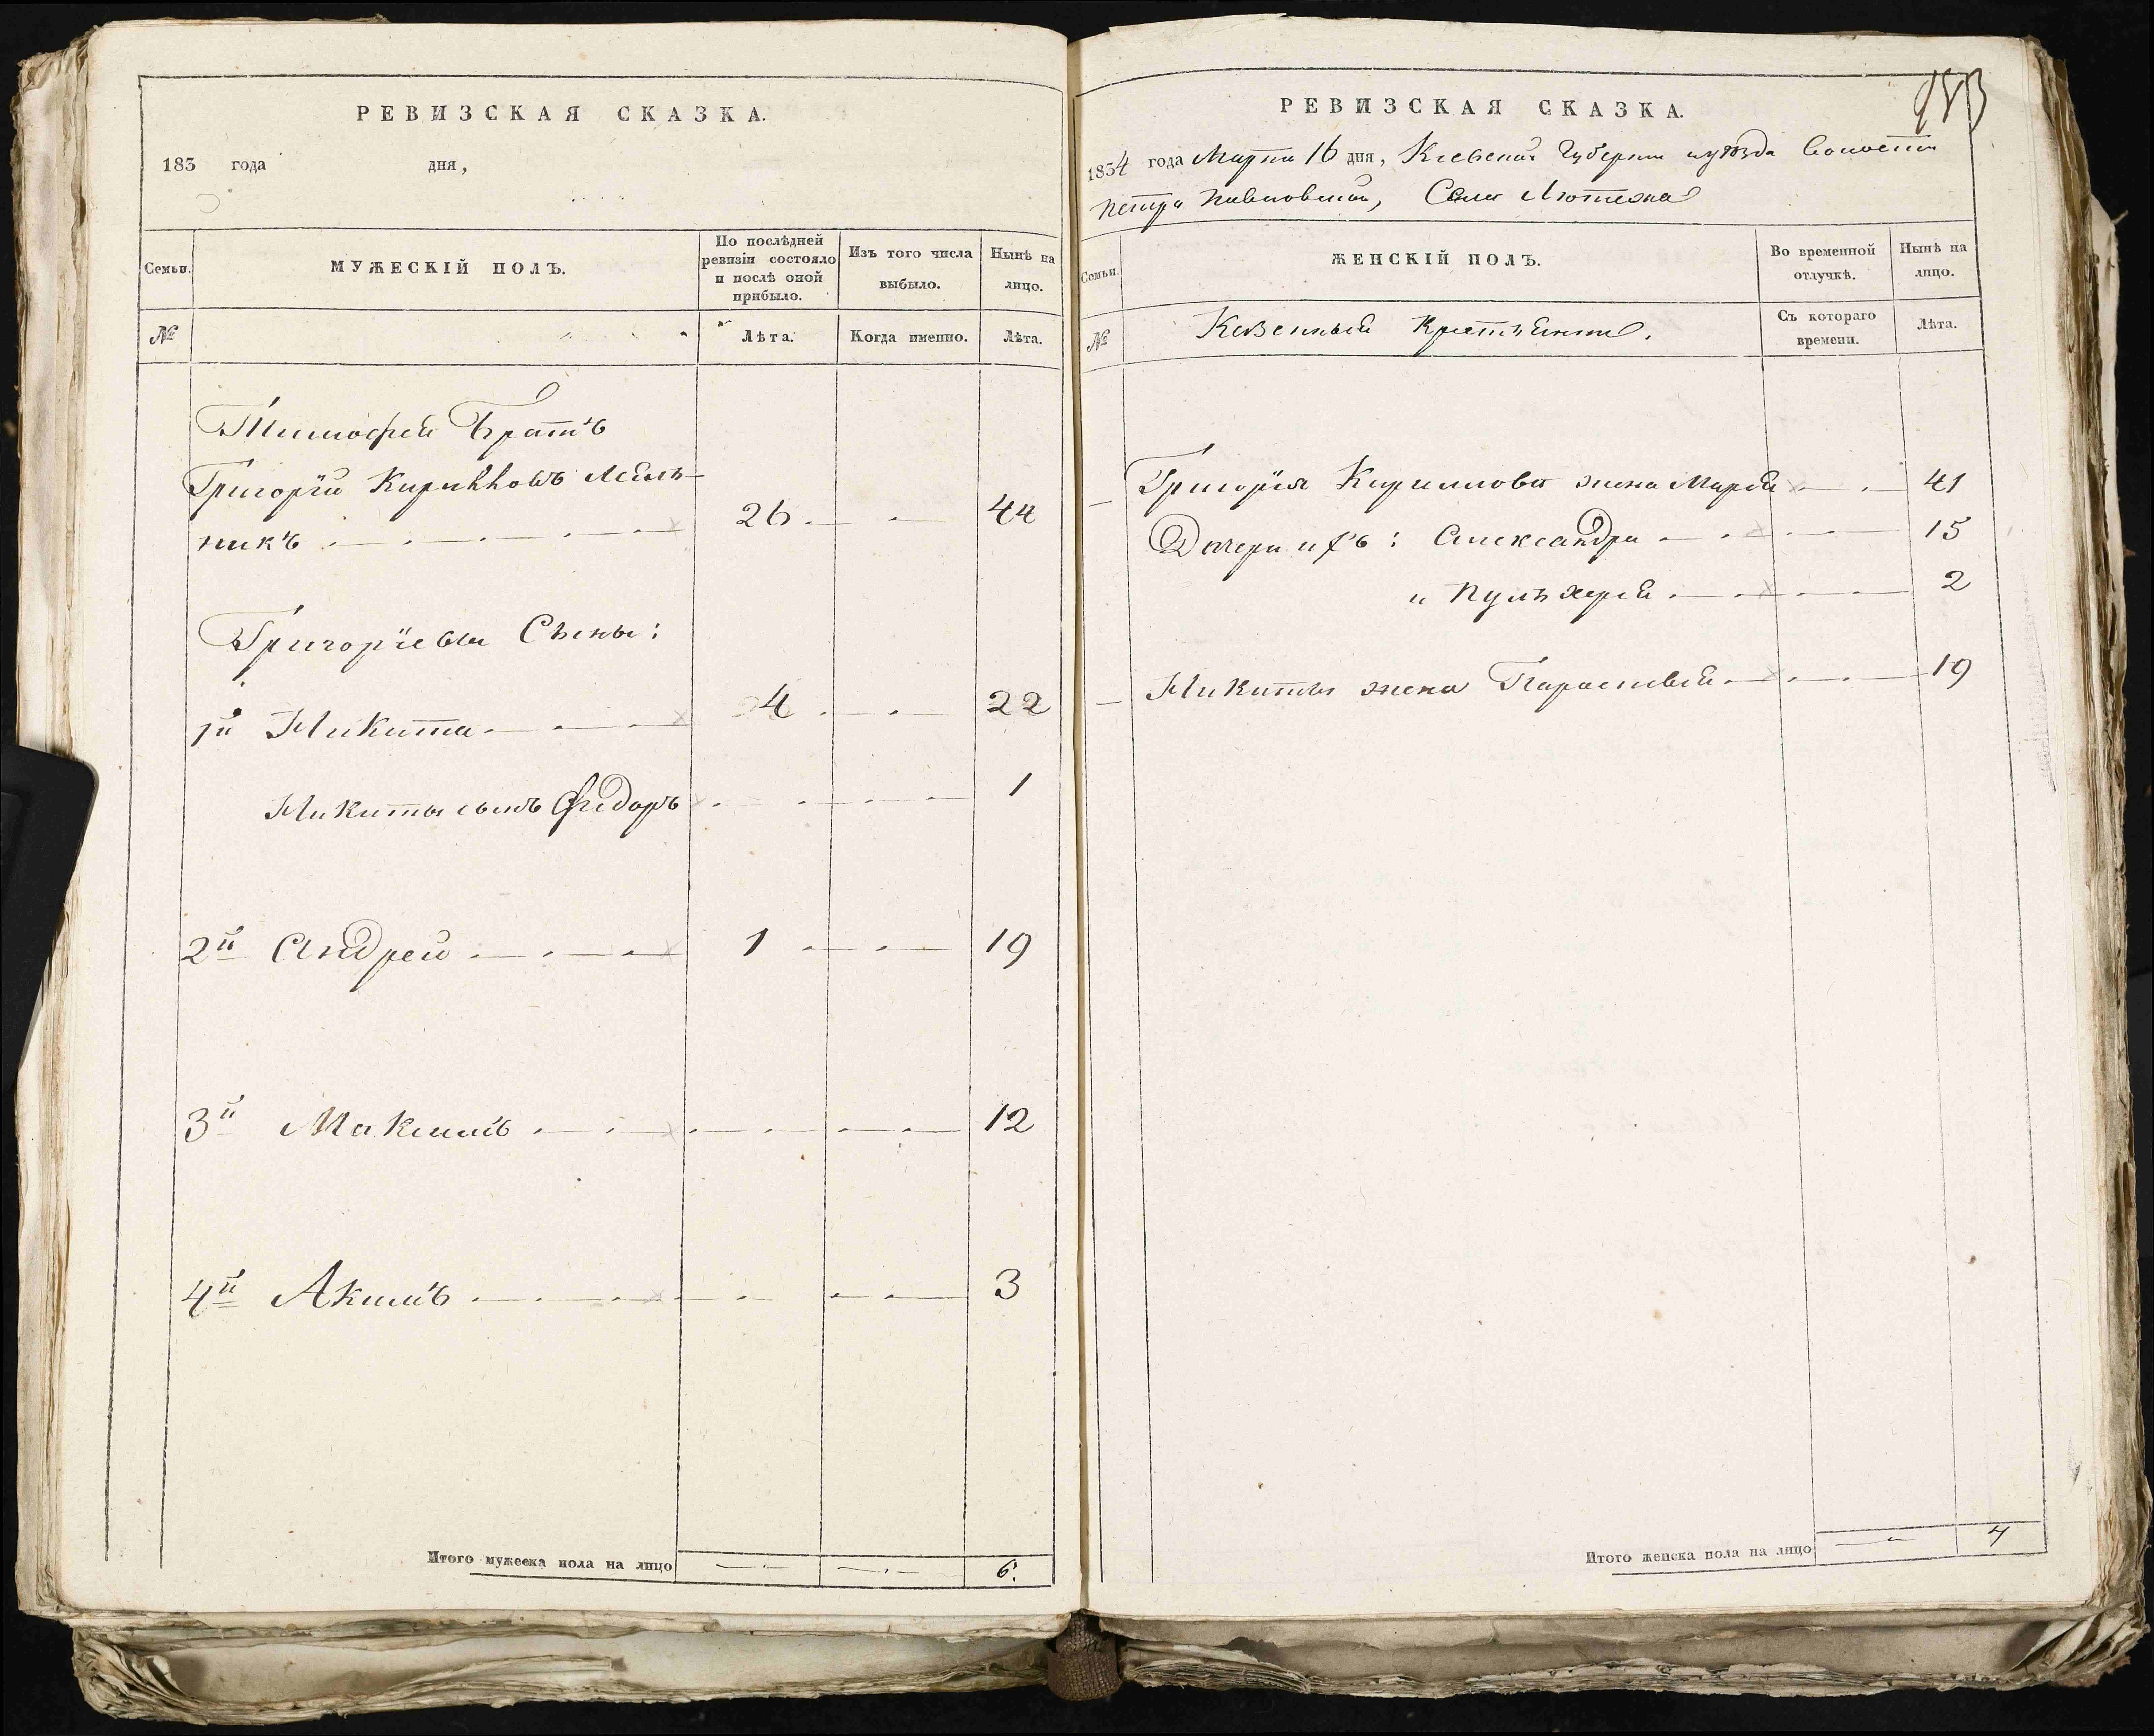 РЕВИЗСКАЯ СКАЗКА.
183 года дня,
Семьи.
МУЖЕСКІЙ ПОЛЪ.
По послѣдней ревизіи состояло и послѣ оной прибыло.
Изъ того числа выбыло.
Нынѣ на лицо.
№
Лѣта.
Когда именно.
Лѣта.
Тимофей Братъ
Григорій Кирилловъ Мель-
никъ 26 44
Григоріевы Сыны:
1й Никита 4 22
Никиты сынъ Фёдоръ 1
2й Андрей 1 19
3й Максимъ 12
4й Акимъ 3
Итого мужеска пола на лицо 6.
183
РЕВИЗСКАЯ СКАЗКА.
1834 года Марта 16 дня, Кіевской Губерніи и уѣзда Волости
Петро Павловской, Села Лютежа
Семьи.
ЖЕНСКІЙ ПОЛЪ.
Во временной отлучкѣ.
Нынѣ на лицо.
№
Казенный Крестьянинъ.
Съ котораго времени.
Лѣта.
Григорія Кириллова жена Марія 41
Дочери ихъ: Александра 15
и Пульхерія 2
Никиты жена Параскевія 19
Итого женска пола на лицо 4